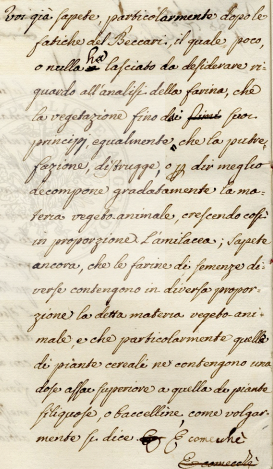 Voi già sapete, particolarmente dopo le
fatiche del Beccari, il quale poco,
o nulla ha lasciato da desiderare ri
guardo all'analisi della farina, che
la vegetazione fino dai suoi
principj, egualmente, che la putre,
fazione, distrugge, o p dir meglio
decompone gradatamente la ma,
teria vegeto animale, crescendo così
in proporzione l'amilacea; sapete
ancora, che le farine di semenze di,
verse contengono in diversa propor,
zione la detta materia vegeto-ani,
male, e che particolarmente quelle
di piante cereali ne contengono una
dose assai superiore a quella de piante
siliquose, o baccelline, come volgar,
mente si dice. E come che